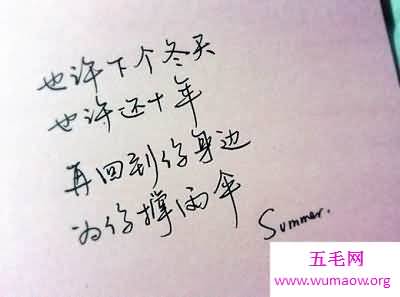 也许下个冬天
也许还十年
再回到你身边
为你撑雨伞
Summer.
五毛网
www.wumaow.org